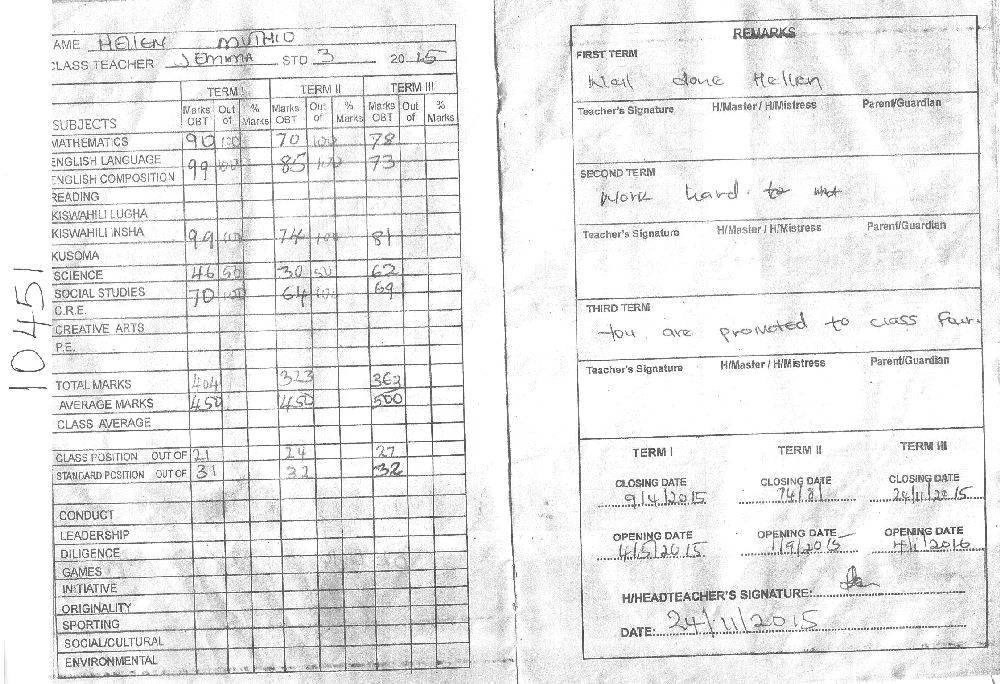 AME HELEN MUTHIO
CLASS TEACHER JEMIMA STD 3 2015
TERM I TERM II TERM III
SUBJECTS Marks OBT Out of % Marks Marks OBT Out of % Marks Marks OBT Out of % Marks
MATHEMATICS 90 100 70 100 78
ENGLISH LANGUAGE 99 100 85 100 73
ENGLISH COMPOSITION
READING
KISWAHILI LUGHA
KISWAHILI INSHA 99 100 74 100 81
KUSOMA
SCIENCE 46 50 30 50 62
SOCIAL STUDIES 70 100 64 100 69
C.R.E.
CREATIVE ARTS
P.E.
TOTAL MARKS 404 323 363
AVERAGE MARKS 450 450 500
CLASS AVERAGE
CLASS POSITION OUT OF 21 24 27
STANDARD POSITION OUT OF 31 32 32
CONDUCT
LEADERSHIP
DILIGENCE
GAMES
INITIATIVE
ORIGINALITY
SPORTING
SOCIAL/CULTURAL
ENVIRONMENTAL
10451
REMARKS
FIRST TERM
Well done Hellen
Teacher's Signature H/Master / H/Mistress Parent/Guardian
SECOND TERM
Work hard to
Teacher's Signature H/Master / H/Mistress Parent/Guardian
THIRD TERM
You are promoted to class four.
Teacher's Signature H/Master / H/Mistress Parent/Guardian
TERM I TERM II TERM III
CLOSING DATE CLOSING DATE CLOSING DATE
9/4/2015 24/11/2015
OPENING DATE OPENING DATE OPENING DATE
4/5/2015 1/9/2015 4/1/2016
H/HEADTEACHER'S SIGNATURE:
DATE: 24/11/2015